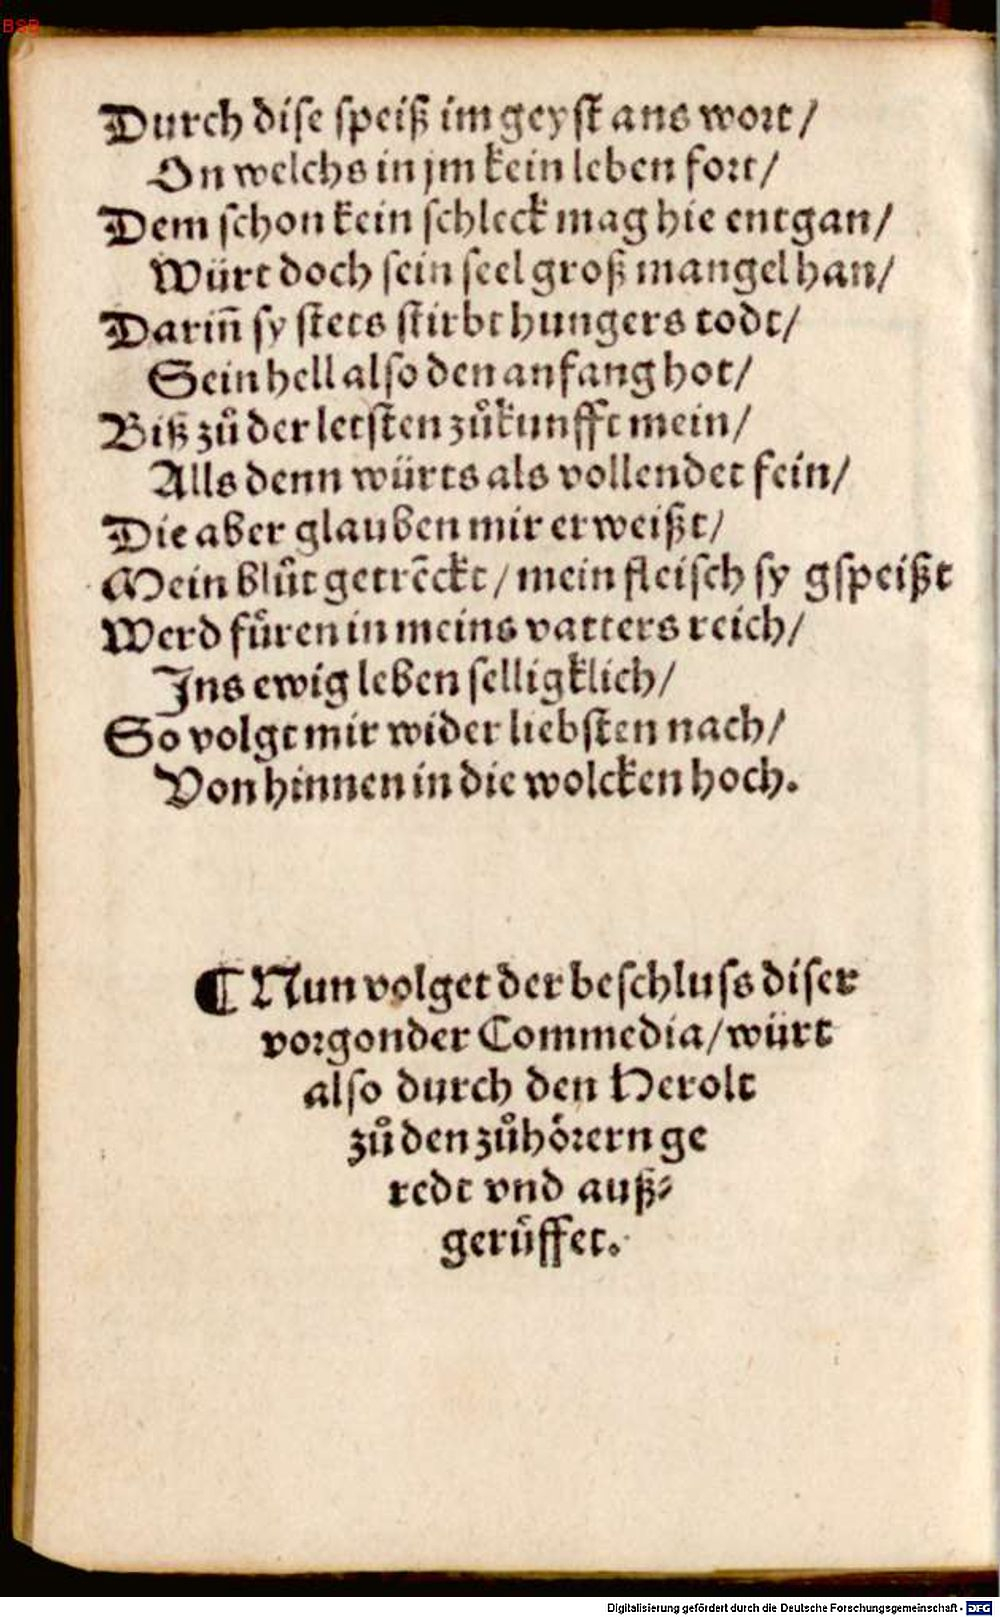 BSB
Durch dise speiß im geyst ans wort/
On welchs in jm kein leben fort/
Dem schon kein schleck mag hie entgan/
Würt doch sein seel groß mangel han/
Dariñ sy stets stirbt hungers todt/
Sein hell also den anfang hot/
Biß zů der letsten zůkunfft mein/
Alls denn würts als vollendet sein/
Die aber glauben mir erweißt/
Mein blůt getrẽckt/ mein fleisch sy gspeißt
Werd fůren in meins vatters reich/
Ins ewig leben selligklich/
So volgt mir wider liebsten nach/
Von hinnen in die wolcken hoch.
¶ Nun volget der beschluss diser
vorgonder Commedia/ würt
also durch den Herolt
zů den zůhörern ge
redt vnd auß⸗
gerůffet.
Digitalisierung gefördert durch die Deutsche Forschungsgemeinschaft - DFG